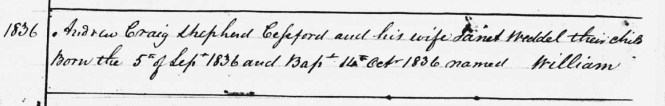 1836 Andrew Craig Shepherd Cessford and his wife Janet Weddel their child
Born the 5th of Sept 1836 and Bapt 14th Octr 1836 named William